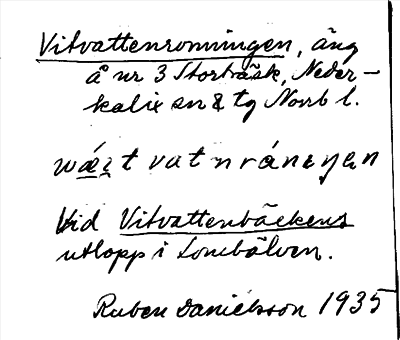 Vitvattenronningen, äng
å nr 3 Storträsk, Neder-
kalix sn & tg Norrb l.
wǽıt vatnránıŋən
Vid Vitvattenbäckens
utlopp i Lombälven.
Ruben Danielsson 1935